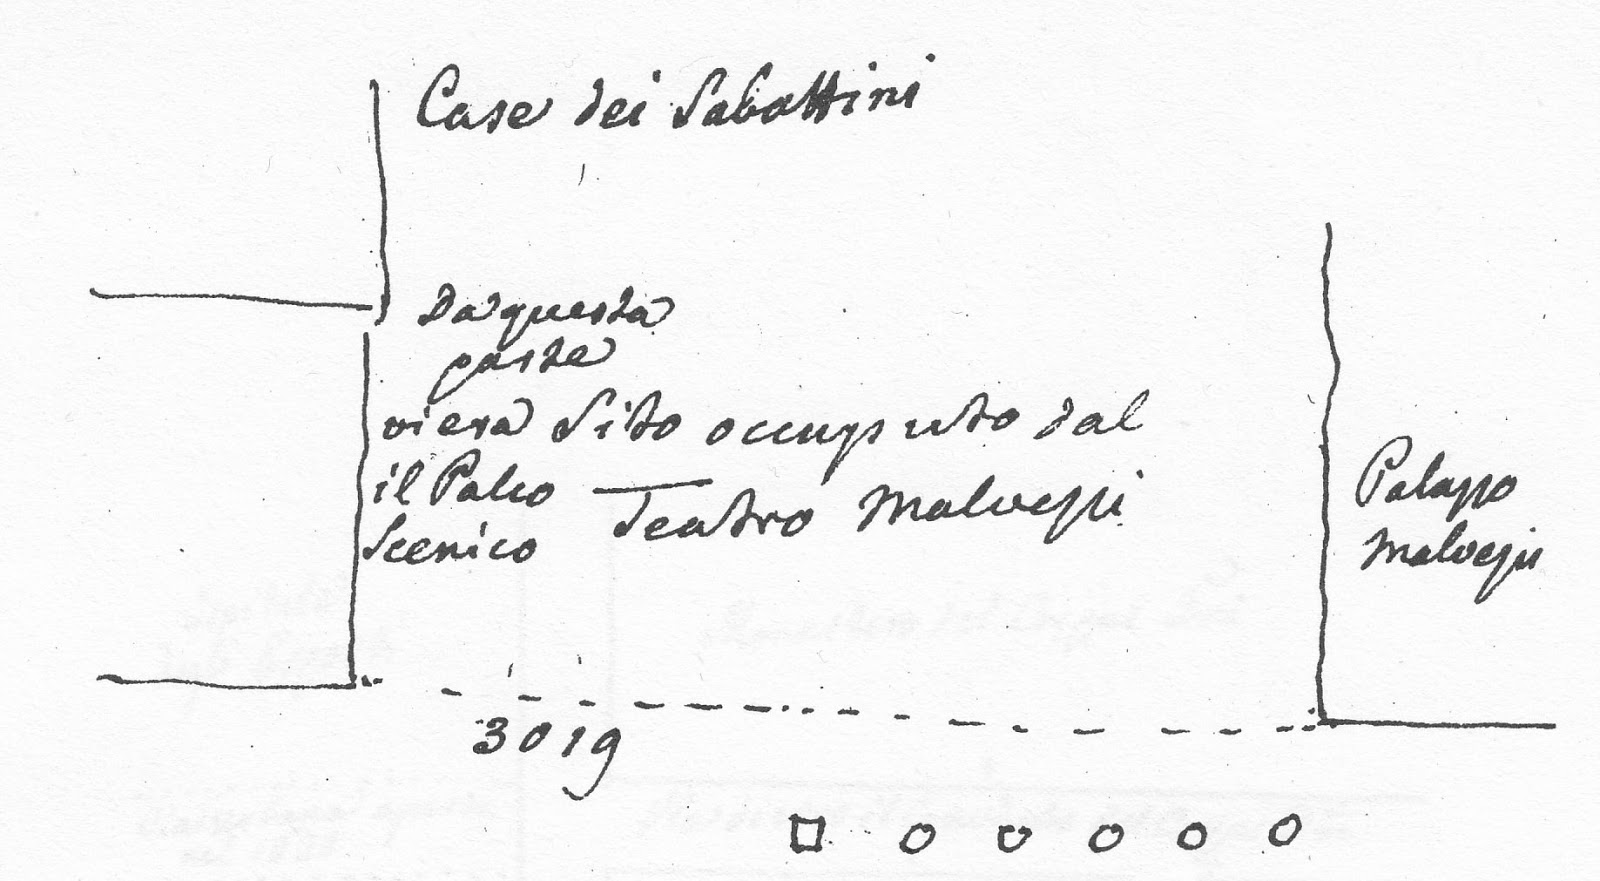 Case dei Sabattini
Da questa
parte
viera Sito occupato dal
il Palco Teatro Malvezzi
Scenico
Palazzo
Malvezzi
3019